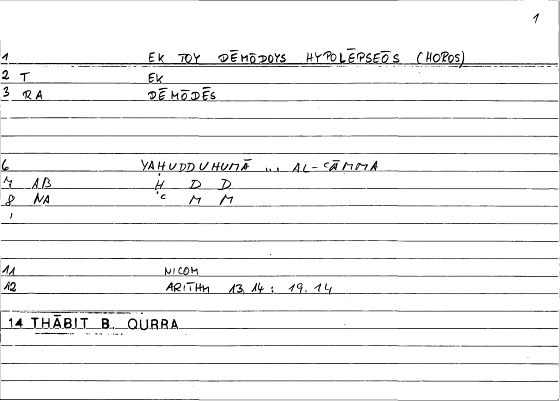 1
1 EK TOY DĒMŌDOYS HYPOLĒPSEŌS (HOROS)
2 T EK
3 RA DĒMŌDĒS
6 YAḤUDDUHUMĀ ... AL-ʿĀMMA
7 AB Ḥ D D
8 NA ʿ M M
11 NICOM
12 ARITHM 13,14 : 19.14
14 THĀBIT B. QURRA